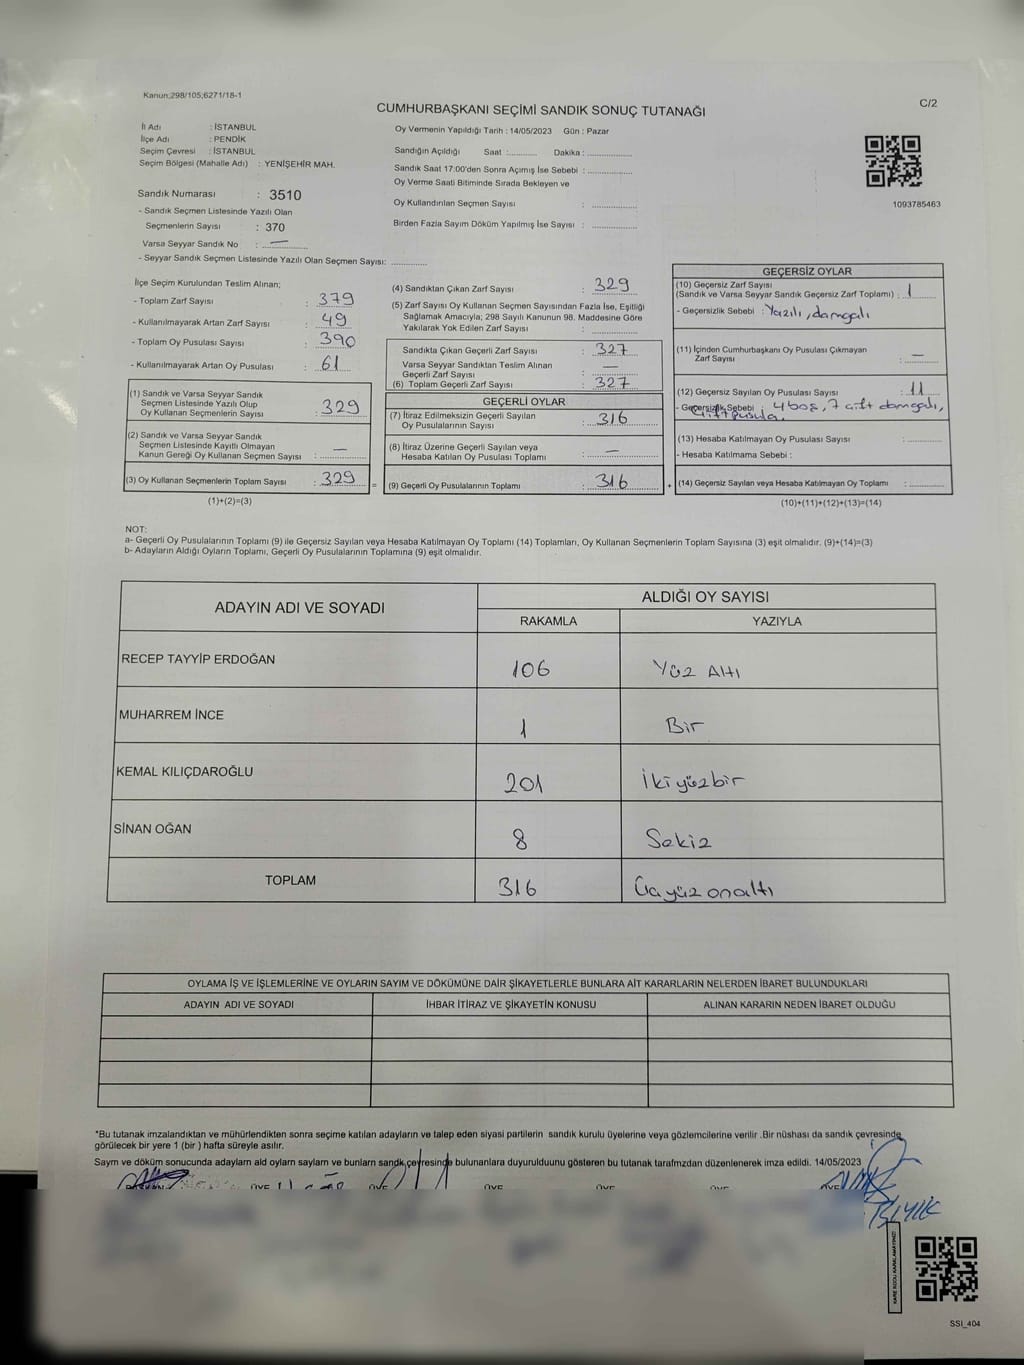 Kanun;298/105;6271/18-1
CUMHURBAŞKANI SEÇİMİ SANDIK SONUÇ TUTANAĞI
C/2
İl Adı : İSTANBUL
İlçe Adı : PENDİK
Seçim Çevresi : İSTANBUL
Seçim Bölgesi (Mahalle Adı) : YENİŞEHİR MAH.
Sandık Numarası : 3510
- Sandık Seçmen Listesinde Yazılı Olan
Seçmenlerin Sayısı : 370
Varsa Seyyar Sandık No : —
- Seyyar Sandık Seçmen Listesinde Yazılı Olan Seçmen Sayısı: ............
Oy Vermenin Yapıldığı Tarih : 14/05/2023 Gün : Pazar
Sandığın Açıldığı Saat :.......... Dakika : ...............
Sandık Saat 17:00'den Sonra Açımış İse Sebebi : ...............
Oy Verme Saati Bitiminde Sırada Bekleyen ve
Oy Kullandırılan Seçmen Sayısı : ...............
Birden Fazla Sayım Döküm Yapılmış İse Sayısı : ...............
1093785463
İlçe Seçim Kurulundan Teslim Alınan;
- Toplam Zarf Sayısı : 379
- Kullanılmayarak Artan Zarf Sayısı : 49
- Toplam Oy Pusulası Sayısı : 390
- Kullanılmayarak Artan Oy Pusulası : 61
(1) Sandık ve Varsa Seyyar Sandık
Seçmen Listesinde Yazılı Olup
Oy Kullanan Seçmenlerin Sayısı : 329
(2) Sandık ve Varsa Seyyar Sandık
Seçmen Listesinde Kayıtlı Olmayan
Kanun Gereği Oy Kullanan Seçmen Sayısı : —
(3) Oy Kullanan Seçmenlerin Toplam Sayısı : 329 =
(1)+(2)=(3)
(4) Sandıktan Çıkan Zarf Sayısı : 329
(5) Zarf Sayısı Oy Kullanan Seçmen Sayısından Fazla İse, Eşitliği
Sağlamak Amacıyla; 298 Sayılı Kanunun 98. Maddesine Göre
Yakılarak Yok Edilen Zarf Sayısı : ...............
Sandıkta Çıkan Geçerli Zarf Sayısı : 327
Varsa Seyyar Sandıktan Teslim Alınan —
Geçerli Zarf Sayısı :
(6) Toplam Geçerli Zarf Sayısı : 327
GEÇERLİ OYLAR
(7) İtiraz Edilmeksizin Geçerli Sayılan
Oy Pusulalarının Sayısı : 316
(8) İtiraz Üzerine Geçerli Sayılan veya
Hesaba Katılan Oy Pusulası Toplamı : —
(9) Geçerli Oy Pusulalarının Toplamı : 316 +
GEÇERSİZ OYLAR
(10) Geçersiz Zarf Sayısı
(Sandık ve Varsa Seyyar Sandık Geçersiz Zarf Toplamı) : 1
- Geçersizlik Sebebi : Yazılı, damgalı
(11) İçinden Cumhurbaşkanı Oy Pusulası Çıkmayan
Zarf Sayısı : —
(12) Geçersiz Sayılan Oy Pusulası Sayısı : 11
- Geçersizlik Sebebi : 4 boş, 7 çift damgalı,
çift pusula.
(13) Hesaba Katılmayan Oy Pusulası Sayısı : ............
- Hesaba Katılmama Sebebi :
(14) Geçersiz Sayılan veya Hesaba Katılmayan Oy Toplamı : ............
(10)+(11)+(12)+(13)=(14)
NOT:
a- Geçerli Oy Pusulalarının Toplamı (9) ile Geçersiz Sayılan veya Hesaba Katılmayan Oy Toplamı (14) Toplamları, Oy Kullanan Seçmenlerin Toplam Sayısına (3) eşit olmalıdır. (9)+(14)=(3)
b- Adayların Aldığı Oyların Toplamı, Geçerli Oy Pusulalarının Toplamına (9) eşit olmalıdır.
ADAYIN ADI VE SOYADI
ALDIĞI OY SAYISI
RAKAMLA YAZIYLA
RECEP TAYYİP ERDOĞAN 106 Yüz Altı
MUHARREM İNCE 1 Bir
KEMAL KILIÇDAROĞLU 201 İkiyüzbir
SİNAN OĞAN 8 Sekiz
TOPLAM 316 Üçyüzonaltı
OYLAMA İŞ VE İŞLEMLERİNE VE OYLARIN SAYIM VE DÖKÜMÜNE DAİR ŞİKAYETLERLE BUNLARA AİT KARARLARIN NELERDEN İBARET BULUNDUKLARI
ADAYIN ADI VE SOYADI İHBAR İTİRAZ VE ŞİKAYETİN KONUSU ALINAN KARARIN NEDEN İBARET OLDUĞU
*Bu tutanak imzalandıktan ve mühürlendikten sonra seçime katılan adayların ve talep eden siyasi partilerin sandık kurulu üyelerine veya gözlemcilerine verilir .Bir nüshası da sandık çevresinde
görülecek bir yere 1 (bir ) hafta süreyle asılır.
Saym ve döküm sonucunda adaylarn ald oylarn saylarn ve bunlarn sandk çevresinde bulunanlara duyurulduunu gösteren bu tutanak tarafmzdan düzenlenerek imza edildi. 14/05/2023
ÜYE ÜYE ÜYE ÜYE ÜYE
KARE KODU KARALAMAYINIZ!
SSI_404